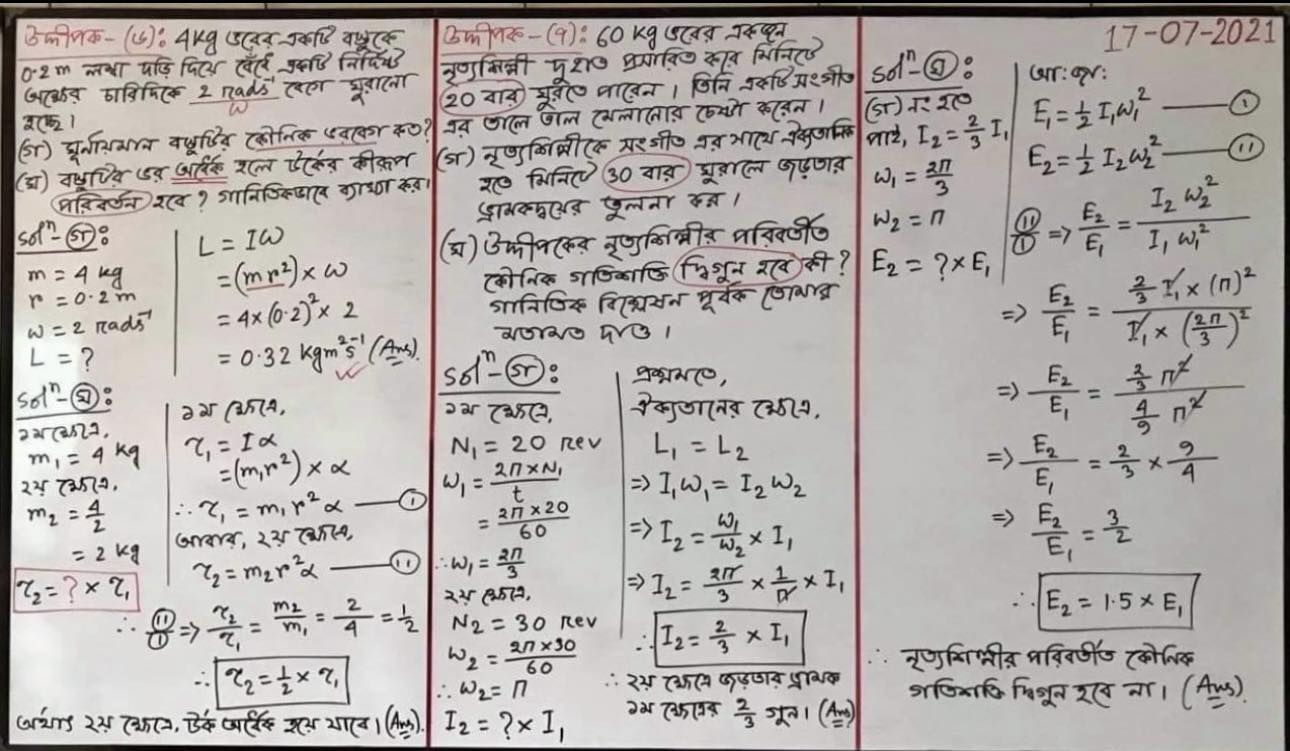 উদ্দীপক-(৬): 4kg ভরের একটি বস্তুকে
0.2m লম্বা দড়ি দিয়ে বেঁধে একটি নির্দিষ্ট
অক্ষের চারিদিকে 2 rads⁻¹ বেগে ঘুরানো
ω
হচ্ছে।
(গ) ঘুর্নায়মান বস্তুটির কৌনিক ভরবেগ কত?
(ঘ) বস্তুটির ভর অর্ধেক হলে টর্কের কীরূপ
পরিবর্তন হবে? গানিতিকভাবে ব্যাখ্যা কর।
solⁿ-(গ):
m = 4 kg
r = 0.2 m
ω = 2 rads⁻¹
L = ?
L = Iω
= (mr²) × ω
= 4×(0.2)² × 2
= 0.32 kgm²s⁻¹ (Ans).
solⁿ-(ঘ):
১ম ক্ষেত্রে,
m₁ = 4 kg
২য় ক্ষেত্রে,
m₂ = 4/2
= 2 kg
τ₂ = ? × τ₁
১ম ক্ষেত্রে,
τ₁ = Iα
= (m₁r²) × α
∴ τ₁ = m₁r²α —— (i)
আবার, ২য় ক্ষেত্রে,
τ₂ = m₂r²α —— (ii)
∴ (ii)/(i) => τ₂/τ₁ = m₂/m₁ = 2/4 = 1/2
∴ τ₂ = 1/2 × τ₁
অর্থাৎ ২য় ক্ষেত্রে, টর্ক অর্ধেক হয়ে যাবে। (Ans).
উদ্দীপক-(৭): 60 kg ভরের একজন
নৃত্যশিল্পী দুহাত প্রসারিত করে মিনিটে
20 বার ঘুরতে পারেন। তিনি একটি সংগীত
এর তালে তাল মেলানোর চেষ্টা করেন।
(গ) নৃত্যশিল্পীকে সংগীত এর সাথে ঐক্যতানিক
হতে মিনিটে 30 বার ঘুরালে জড়তার
ভ্রামকদ্বয়ের তুলনা কর।
(ঘ) উদ্দীপকের নৃত্যশিল্পীর পরিবর্তীত
কৌনিক গতিশক্তি দ্বিগুন হবে কী?
গানিতিক বিশ্লেষন পূর্বক তোমার
মতামত দাও।
solⁿ-(গ):
১ম ক্ষেত্রে,
N₁ = 20 rev
ω₁ = 2π×N₁/t
= 2π×20/60
∴ ω₁ = 2π/3
২য় ক্ষেত্রে,
N₂ = 30 rev
ω₂ = 2π×30/60
∴ ω₂ = π
I₂ = ? × I₁
প্রশ্নমতে,
ঐক্যতানের ক্ষেত্রে,
L₁ = L₂
=> I₁ω₁ = I₂ω₂
=> I₂ = ω₁/ω₂ × I₁
=> I₂ = 2π/3 × 1/π × I₁
∴ I₂ = 2/3 × I₁
∴ ২য় ক্ষেত্রে জড়তার ভ্রামক
১ম ক্ষেত্রের 2/3 গুন। (Ans)
17-07-2021
solⁿ-(ঘ):
(গ) নং হতে
পাই, I₂ = 2/3 I₁
ω₁ = 2π/3
ω₂ = π
E₂ = ? × E₁
আঃ জাঃ
E₁ = 1/2 I₁ω₁² —— (i)
E₂ = 1/2 I₂ω₂² —— (ii)
(ii)/(i) => E₂/E₁ = I₂ω₂²/I₁ω₁²
=> E₂/E₁ = 2/3 I₁ × (π)²/I₁ × (2π/3)²
=> E₂/E₁ = 2/3 π²/4/9 π²
=> E₂/E₁ = 2/3 × 9/4
=> E₂/E₁ = 3/2
∴ E₂ = 1.5 × E₁
∴ নৃত্যশিল্পীর পরিবর্তীত কৌনিক
গতিশক্তি দ্বিগুন হবে না। (Ans).